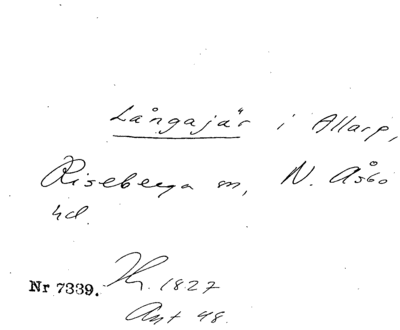 Långajär i Allarp,
Riseberga sn, N. Åsbo
hd.
Nr 7339. 1827
Ant 48.